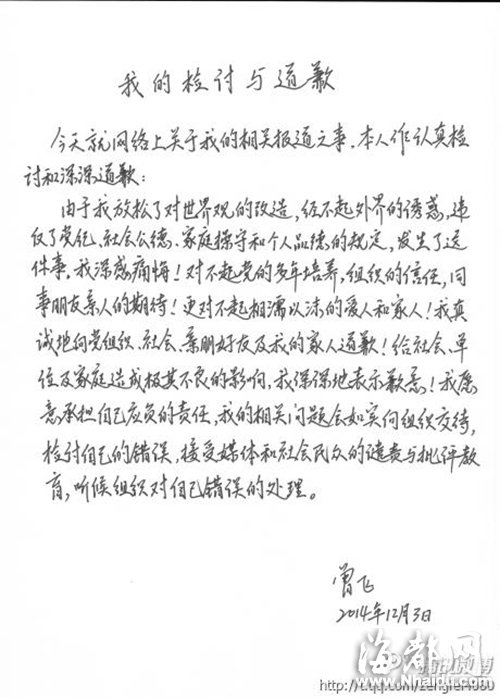 我的检讨与道歉
今天就网络上关于我的相关报道之事,本人作认真检
讨和深深道歉:
由于我放松了对世界观的改造,经不起外界的诱惑,违
反了党纪、社会公德、家庭操守和个人品德的规定,发生了这
件事。我深感痛悔!对不起党的多年培养,组织的信任,同
事朋友亲人的期待!更对不起相濡以沫的爱人和家人!我真
诚地向党组织、社会、亲朋好友及我的家人道歉!给社会、单
位及家庭造成极其不良的影响,我深深地表示歉意!我愿
意承担自己应负的责任,我的相关问题会如实向组织交待,
检讨自己的错误,接受媒体和社会民众的谴责与批评教
育,听候组织对自己错误的处理。
曾飞
2014年12月3日
海都网
www.Nhaidu.com
腾讯微博